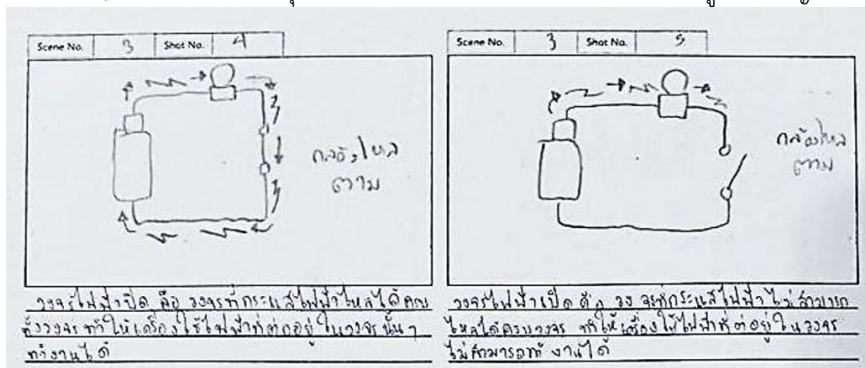 Scene No. 3 Shot No. 4
กล้องไหล
ตาม
วงจรไฟฟ้าปิด คือ วงจรที่กระแสไฟฟ้าไหลได้ครบ
ทั้งวงจร ทำให้เครื่องใช้ไฟฟ้าที่ต่ออยู่ในวงจรนั้นๆ
ทำงานได้
Scene No. 3 Shot No. 5
กล้องไหล
ตาม
วงจรไฟฟ้าเปิด คือ วงจรที่กระแสไฟฟ้าไม่สามารถ
ไหลได้ครบวงจร ทำให้เครื่องใช้ไฟฟ้าที่ต่ออยู่ในวงจร
ไม่สามารถทำงานได้